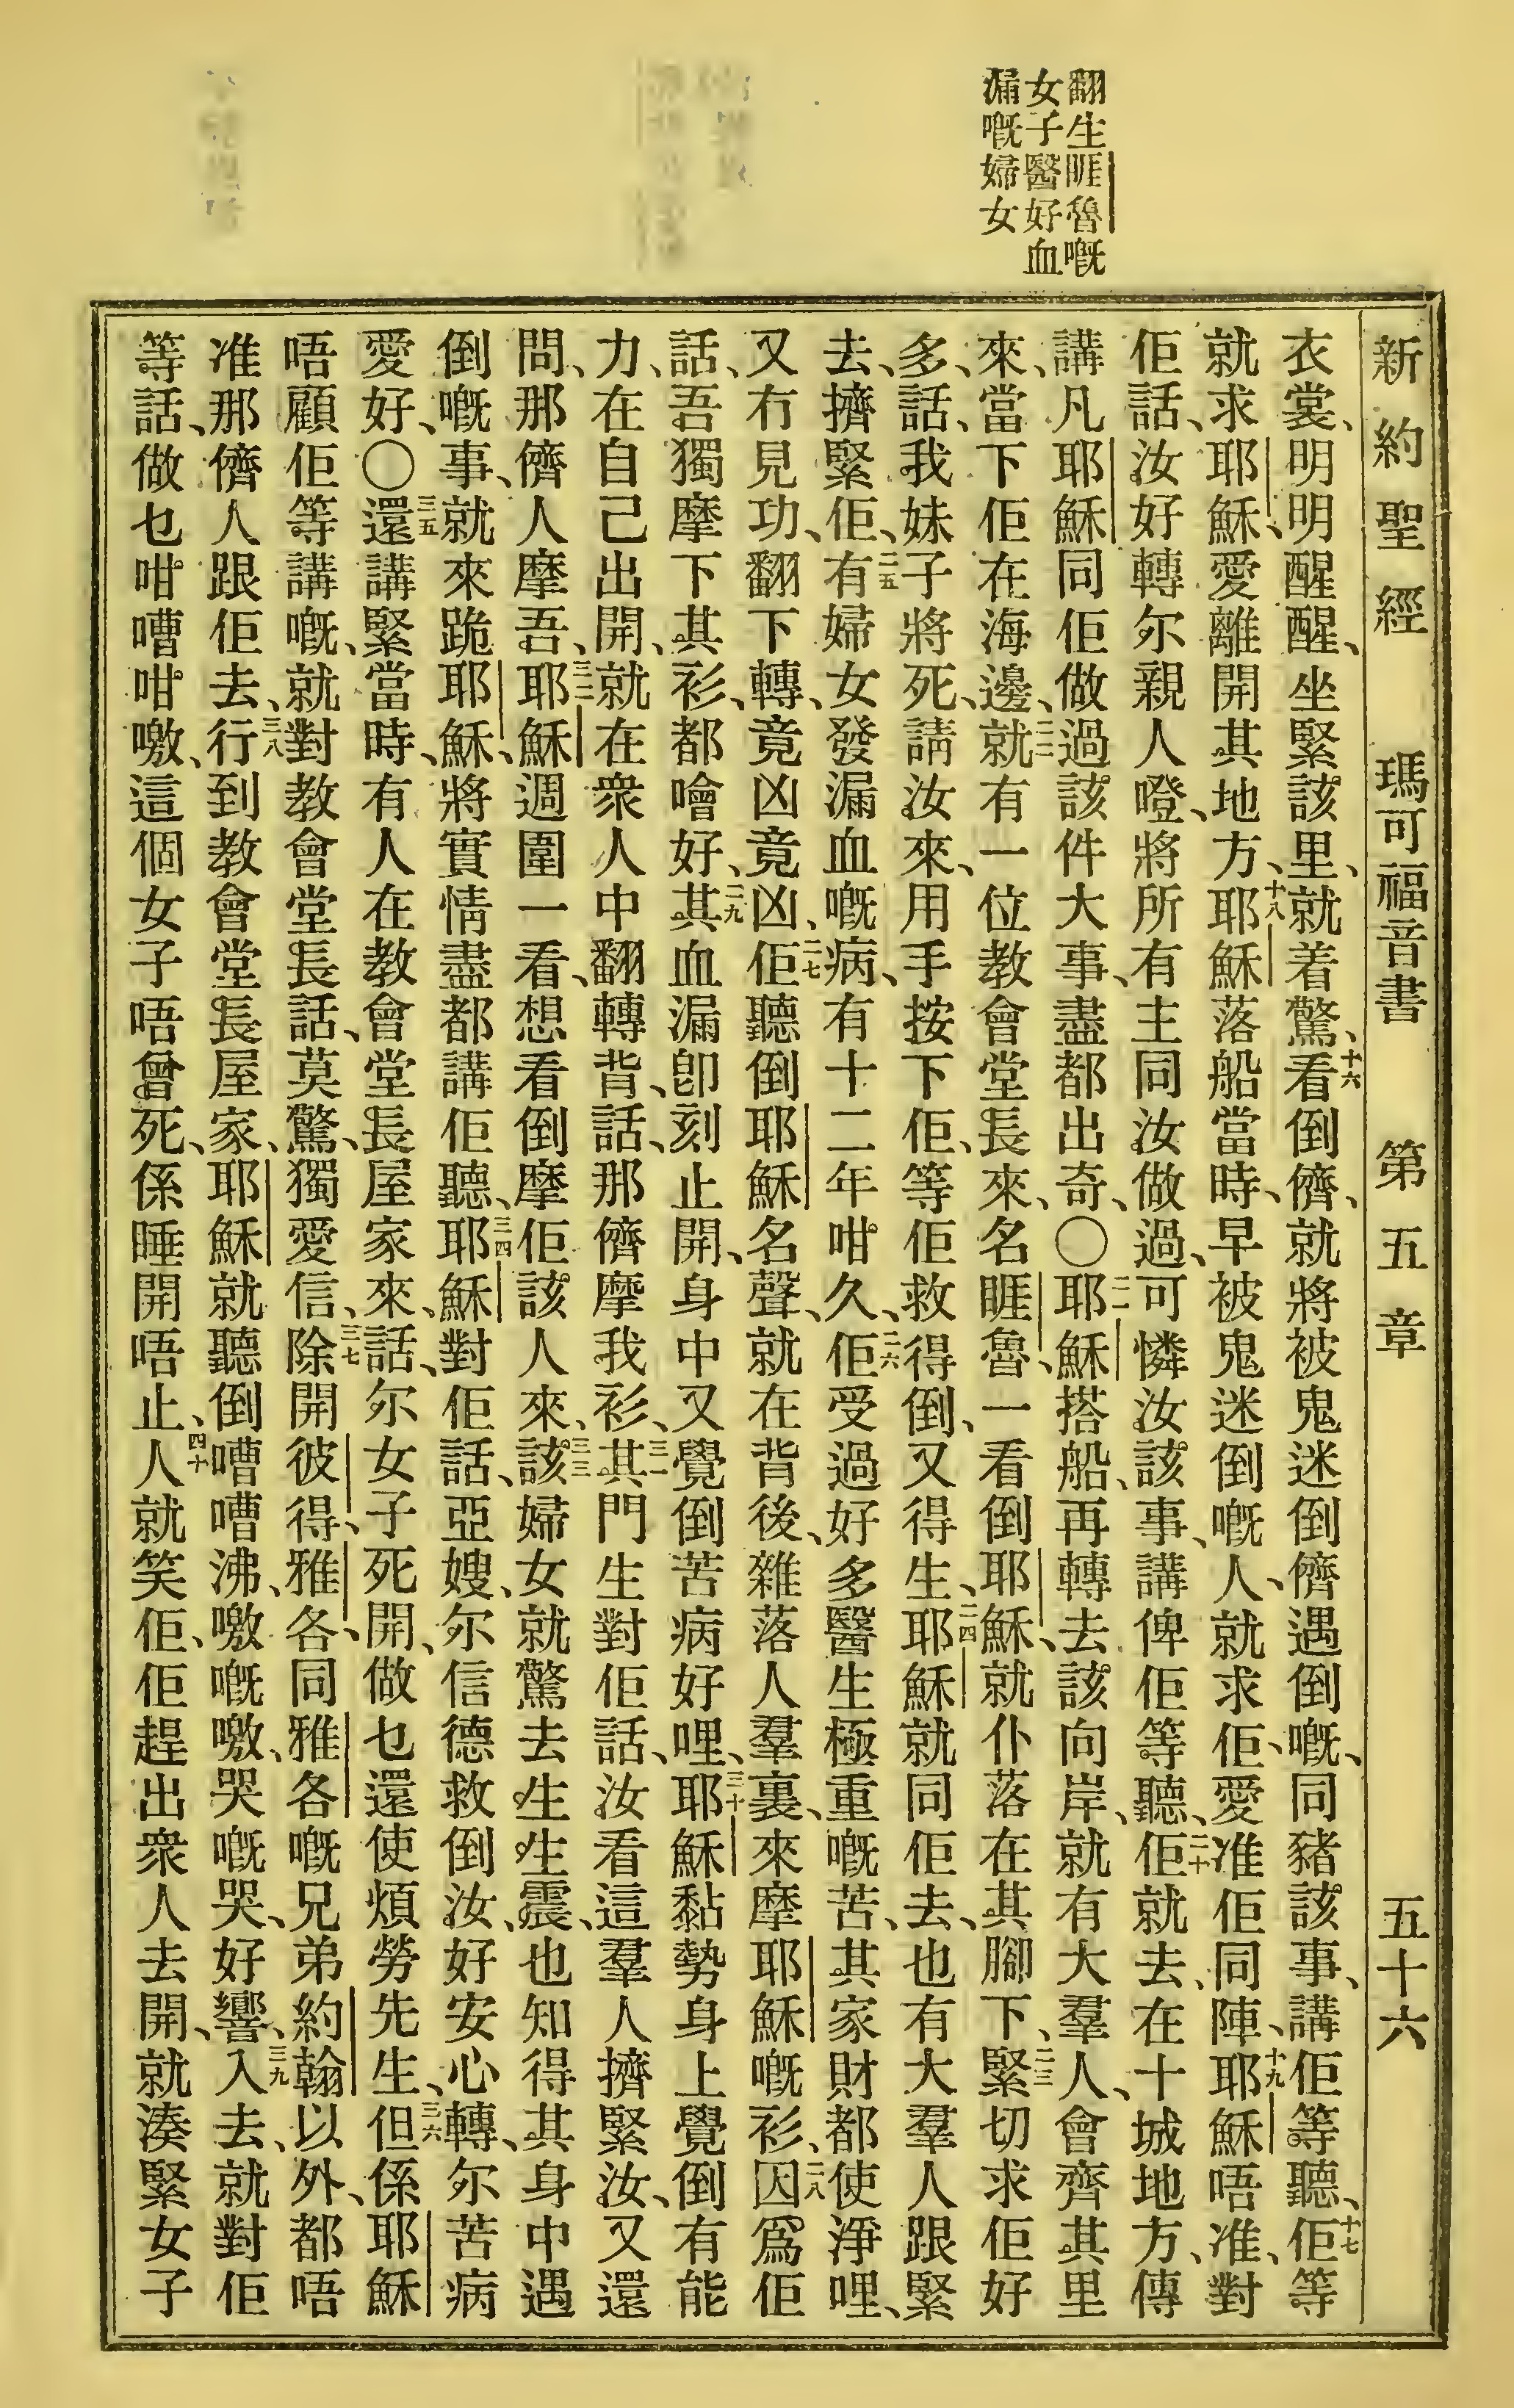 翻生睚魯嘅
女子醫好血
漏嘅婦女
新約聖經 瑪可福音書 第五章 五十六
衣裳、明明醒醒、坐緊該里、就着驚、十六看倒儕、就將被鬼迷倒儕遇倒嘅、同豬該事、講佢等聽、十七佢等
就求耶穌、愛離開其地方、十八耶穌落船當時、早被鬼迷倒嘅人、就求佢、愛准佢同陣、十九耶穌唔准、對
佢話、汝好轉尔親人嶝、將所有主同汝做過、可憐汝該事、講俾佢等聽、二十佢就去、在十城地方、傳
講凡耶穌同佢做過該件大事、盡都出奇、〇二一耶穌搭船、再轉去該向岸、就有大羣人、會齊其里
來、當下佢在海邊、二二就有一位教會堂長來、名睚魯、一看倒耶穌、就仆落在其腳下、二三緊切求佢好
多、話、我妹子將死、請汝來、用手按下佢、等佢救得倒、又得生、二四耶穌就同佢去、也有大羣人跟緊
去、擠緊佢、二五有婦女發漏血嘅病、有十二年咁久、二六佢受過好多醫生極重嘅苦、其家財都使淨哩、
又冇見功、翻下轉、竟凶竟凶、二七佢聽倒耶穌名聲、就在背後、雜落人羣裏、來摩耶穌嘅衫、二八因爲佢
話、吾獨摩下其衫、都噲好、二九其血漏卽刻止開、身中又覺倒苦病好哩、三十耶穌黏勢身上覺倒有能
力、在自己出開、就在衆人中翻轉背、話、那儕摩我衫、三一其門生對佢話、汝看這羣人擠緊汝、又還
問、那儕人摩吾、三二耶穌週圍一看、想看倒摩佢該人來、三三該婦女就驚去生生震、也知得其身中遇
倒嘅事、就來跪耶穌、將實情盡都講佢聽、三四耶穌對佢話、亞嫂、尔信德救倒汝、好安心轉、尔苦病
愛好、〇三五還講緊當時、有人在教會堂長屋家來、話、尔女子死開、做乜還使煩勞先生、三六但係耶穌
唔顧佢等講嘅、就對教會堂長話、莫驚、獨愛信、三七除開彼得、雅各、同雅各嘅兄弟約翰以外、都唔
准那儕人跟佢去、三八行到教會堂長屋家、耶穌就聽倒嘈嘈沸、噭嘅噭、哭嘅哭、好響、三九入去、就對佢
等話、做乜咁嘈咁噭、這個女子唔曾死、係睡開唔止、四十人就笑佢、佢趕出衆人去開、就湊緊女子